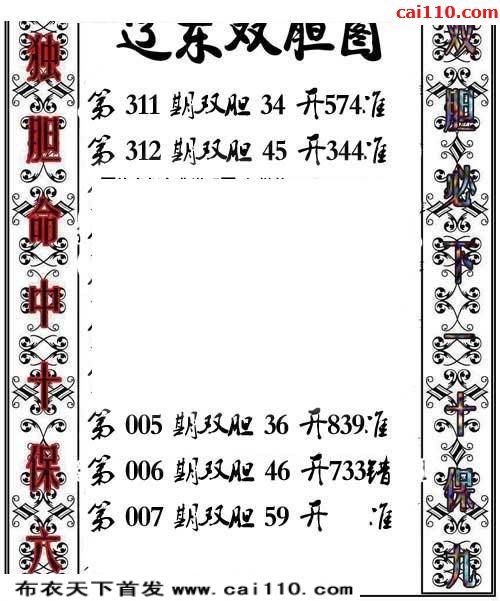 cai110.com
辽东双胆图
独胆命中十保六
第 311 期双胆 34 开574准
第 312 期双胆 45 开344准
第 005 期双胆 36 开839准
第 006 期双胆 46 开733错
第 007 期双胆 59 开 准
双胆必下一十保九
布衣天下首发 www.cai110.com